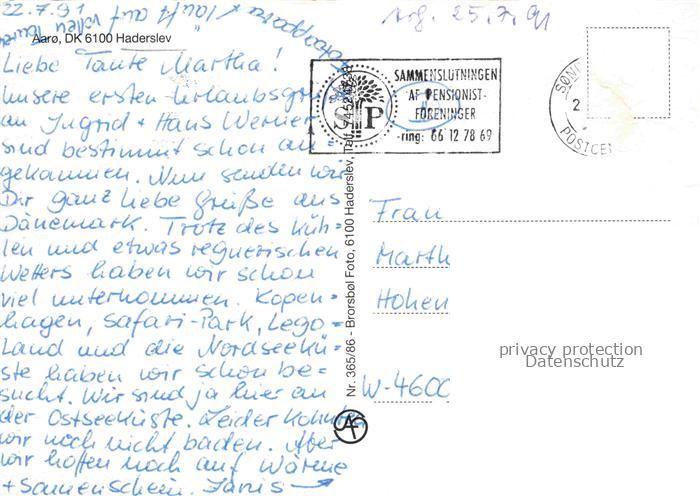 22.7.91
Aarø, DK 6100 Haderslev
Liebe Tante Martha!
Unsere ersten Urlaubsgrü
an Ingrid + Hans Werner
sind bestimmt schon an
gekommen. Nun senden wir
Dir ganz liebe Grüße aus
Dänemark. Trotz des küh-
len und etwas regnerischen
Wetters haben wir schon
viel unternommen. Kopen-
hagen, Safari-Park, Lego-
Land und die Nordseekü-
ste haben wir schon be-
sucht. Wir sind ja hier an
der Ostseeküste. Leider konnten
wir noch nicht baden. Aber
wir hoffen noch auf Wärme
+ Sonnenschein. Janis
läuft auf vollen Touren
Nr. 365/86 - Brorsbøl Foto, 6100 Haderslev, Telf.
25.7.91
SAMMENSLUTNINGEN
AF PENSIONIST-
FORENINGER
-ring: 66 12 78 69
P
SØN
2
POSTCE
Frau
Marth
Hohen
W-4600
privacy protection
Datenschutz